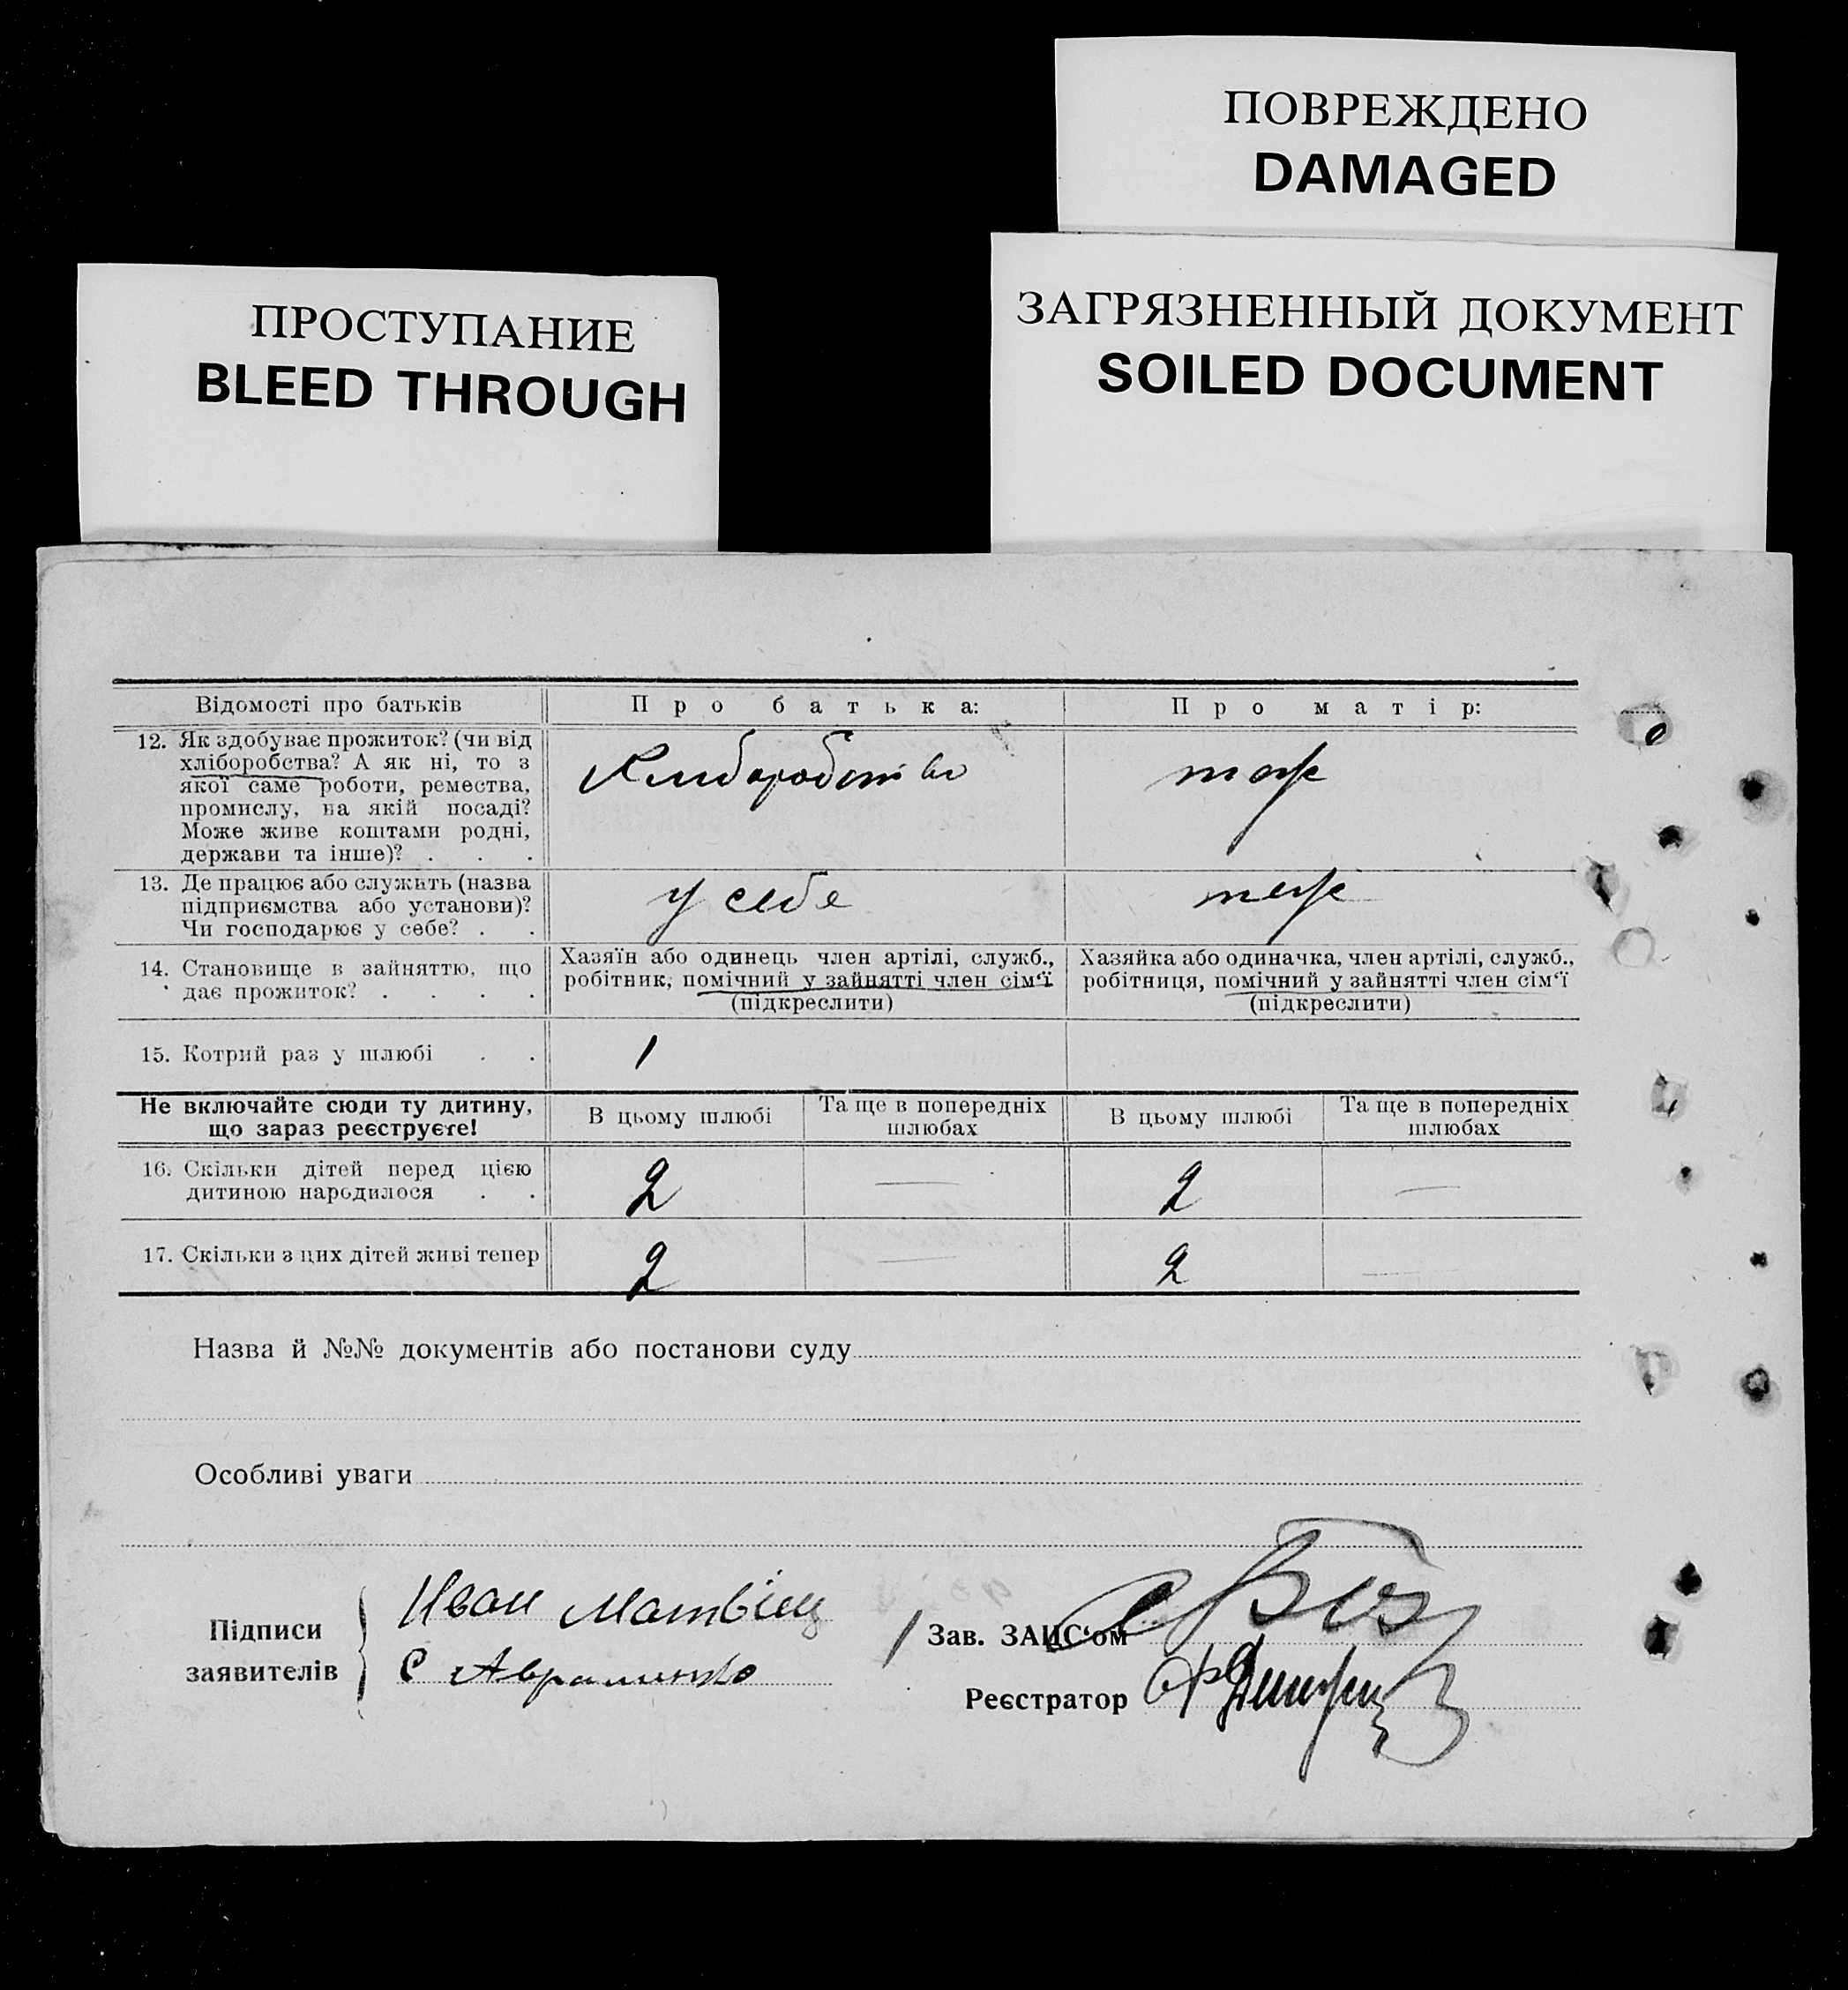 ПОВРЕЖДЕНО
DAMAGED
ПРОСТУПАНИЕ
BLEED THROUGH
ЗАГРЯЗНЕННЫЙ ДОКУМЕНТ
SOILED DOCUMENT
Відомості про батьків
Про батька:
Про матір:
12. Як здобуває прожиток? (чи від
хліборобства? А як ні, то з
якої саме роботи, ремества,
промислу, на якій посаді?
Може живе коштами родні,
держави та інше)? . . .
Хліборобство
теж
13. Де працює або служить (назва
підприємства або установи)?
Чи господарює у себе? . .
у себе
теж
14. Становище в зайняттю, що
дає прожиток? . . . .
Хазяїн або одинець член артілі, служб.,
робітник, помічний у зайнятті член сім‘ї
(підкреслити)
Хазяйка або одиначка, член артілі, служб.,
робітниця, помічний у зайнятті член сім‘ї
(підкреслити)
15. Котрий раз у шлюбі . .
1
Не включайте сюди ту дитину,
що зараз реєструєте!
В цьому шлюбі
Та ще в попередніх
шлюбах
В цьому шлюбі
Та ще в попередніх
шлюбах
16. Скільки дітей перед цією
дитиною народилося . .
2 — 2 —
17. Скільки з цих дітей живі тепер
2 — 2 —
Назва й №№ документів або постанови суду
Особливі уваги
Підписи
заявителів
Иван Матвіец
С Авраменко
Зав. ЗАЦС‘ом
Реєстратор